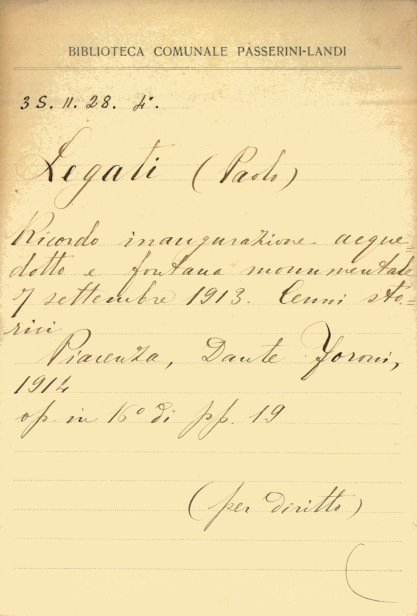 BIBLIOTECA COMUNALE PASSERINI-LANDI
3 S. 11. 28. 4°.
Legati (Paolo)
Ricordo inaugurazione acque-
dotto e fontana monumentale
7 settembre 1913. Cenni sto-
rici
Piacenza, Dante Foroni,
1914
op in 16° di pp. 19
(per diritto)